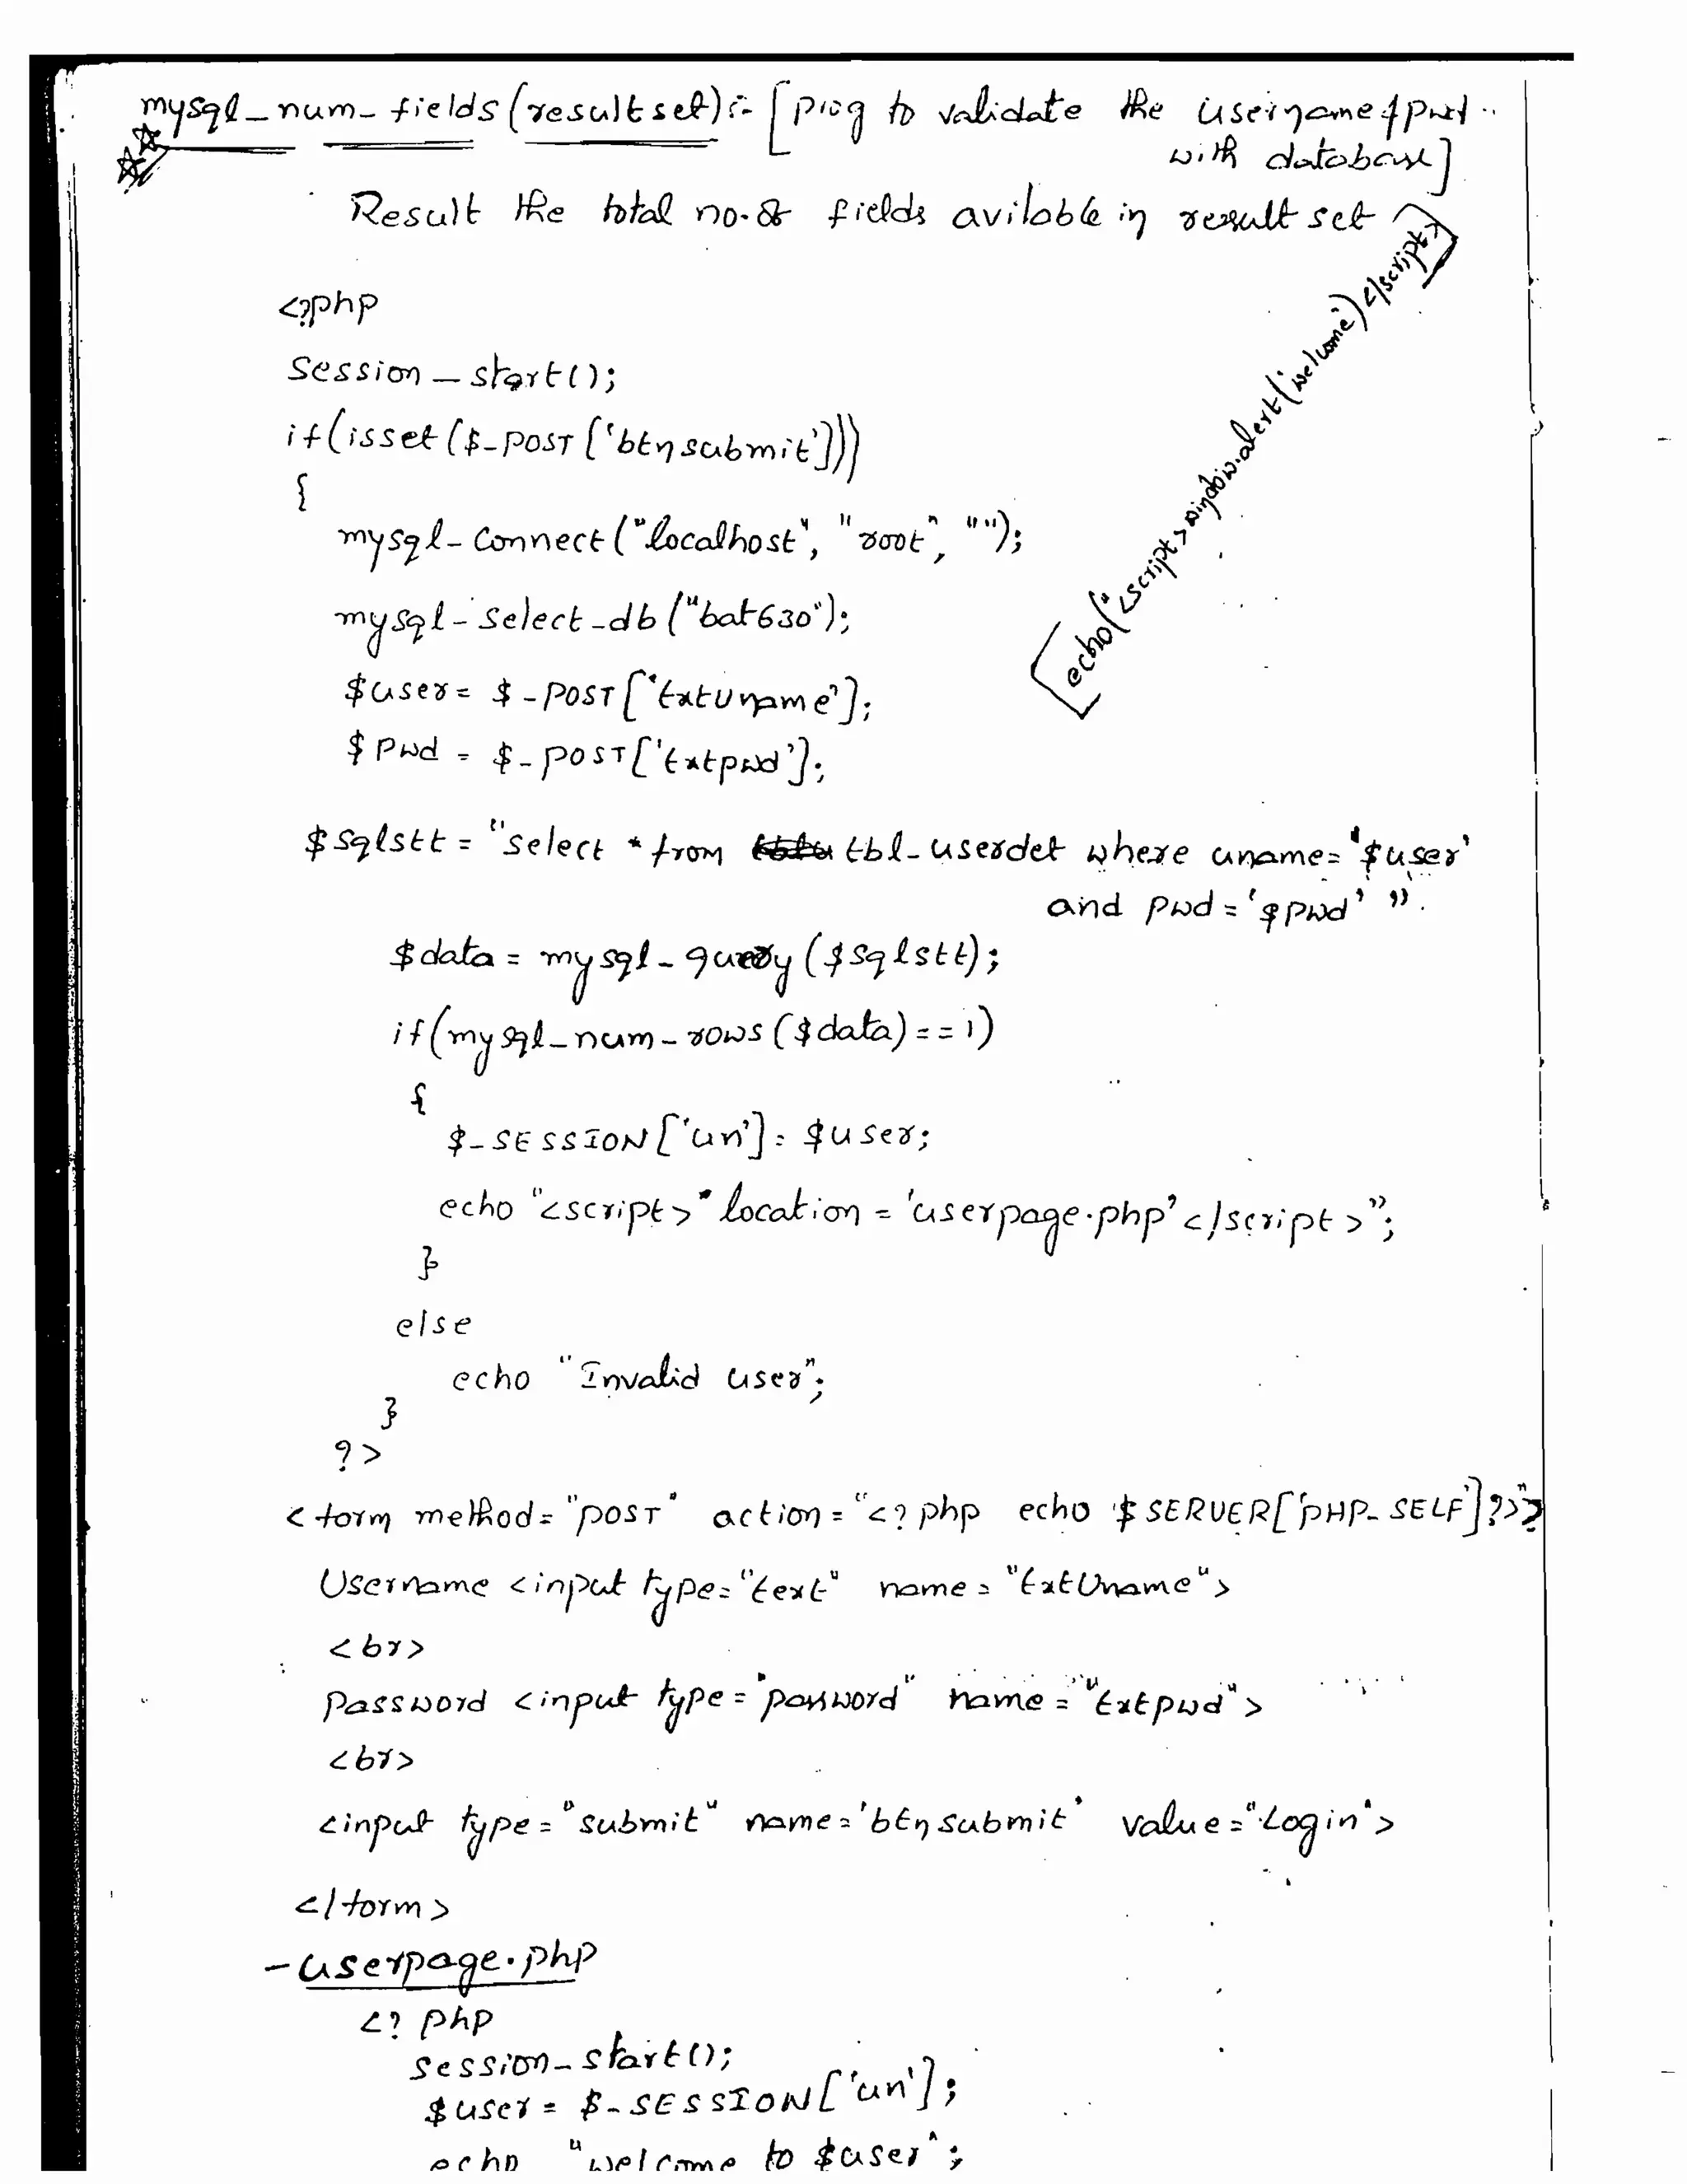 mysql_num_fields(resultset):- [prog to validate the username & pwd
with database]
Result the total no. of fields avilable in result set
<?php
Session_start();
if(isset($_POST['btnsubmit']))
{
mysql_connect("localhost", "root", "");
mysql_select_db("bat630");
$user = $_POST['txtUname'];
$pwd = $_POST['txtpwd'];
[echo("<script>window.alert('welcome')</script>]
$sqlstt = "select * from tbl_userdet where uname='$user'
and pwd='$pwd' ".
$data = mysql_query($sqlstt);
if(mysql_num_rows($data)==1)
{
$_SESSION['un'] = $user;
echo "<script>" location = 'userpage.php'</script>";
}
else
echo "Invalid user";
}
?>
<form method="POST" action="<?php echo $SERVER['PHP_SELF']?>">
Username <input type="text" name="txtUname">
<br>
Password <input type="password" name="txtpwd">
<br>
<input type="submit" name='btnsubmit' value="Login">
</form>
- userpage.php
<?php
session_start();
$user = $_SESSION['un'];
echo "welcome to $user";